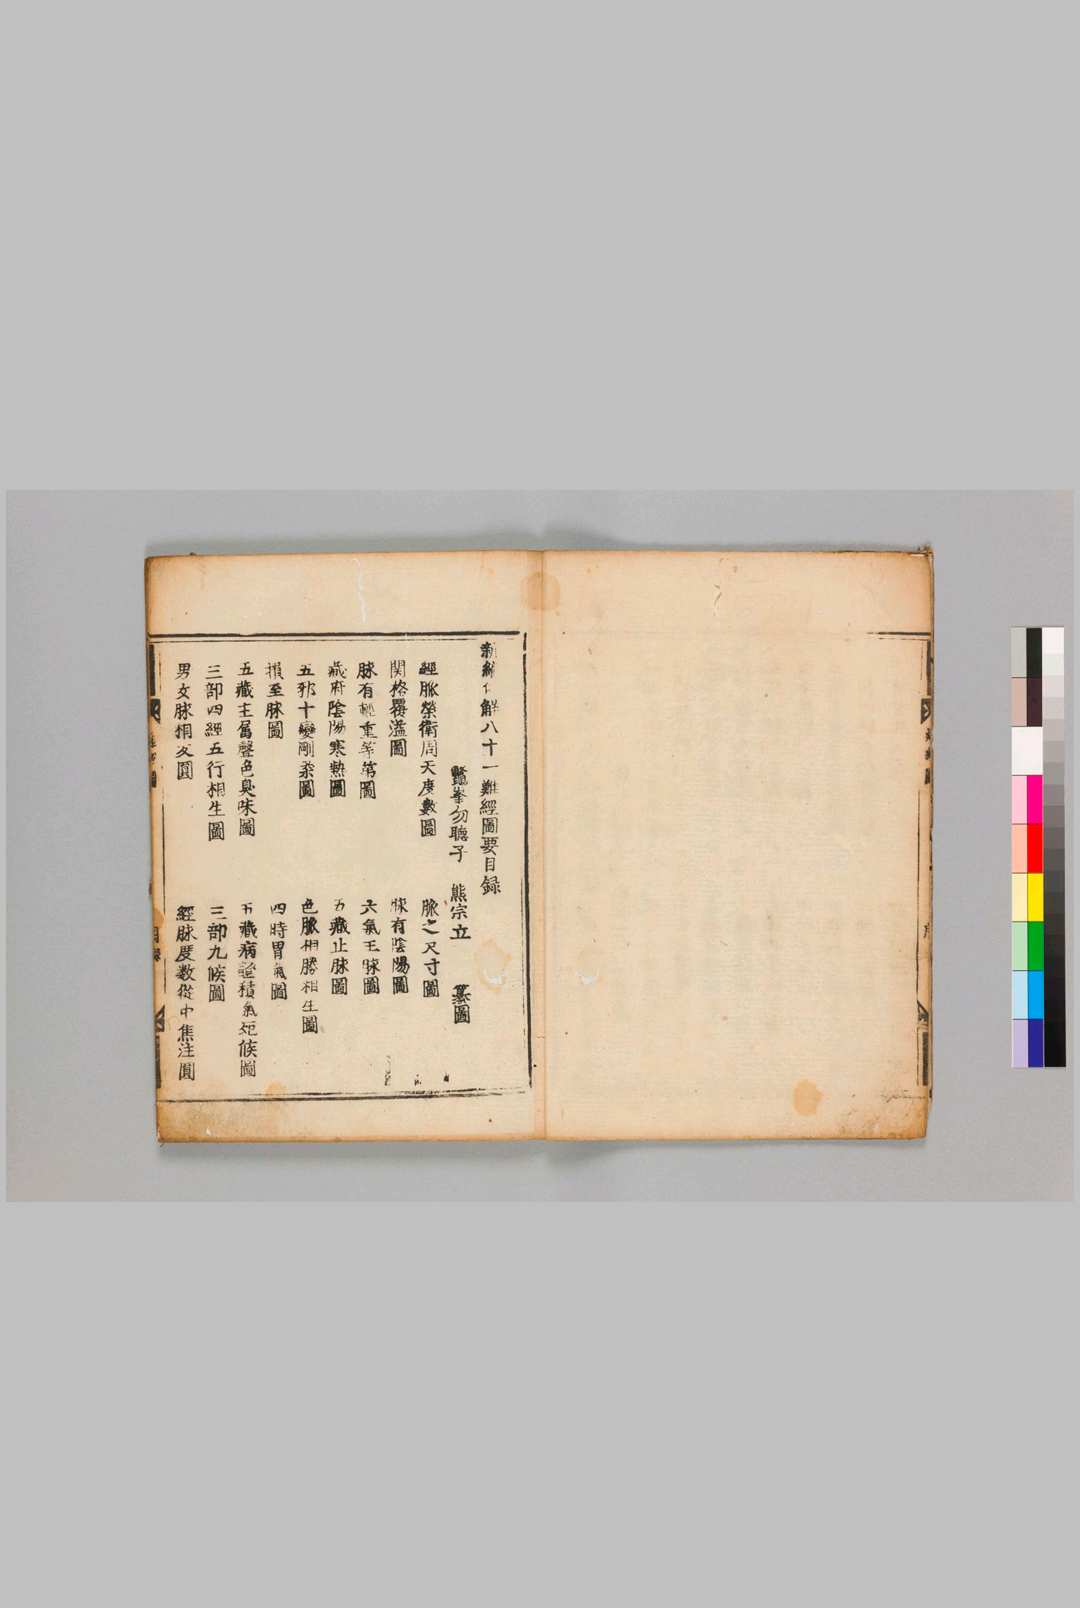 新編俗解八十一難經圖要目録
鼇峯勿聽子 熊宗立 纂圖
經脈榮衛周天度數圖 脈之尺寸圖
関格覆溢圖 脉有陰陽圖
脉有輕重等第圖 六氣王脉圖
藏府陰陽寒熱圖 五藏止脉圖
五邪十變剛柔圖 色脈相勝相生圖
損至脉圖 四時胃氣圖
五藏主属聲色臭味圖 五藏病證積氣 候圖
三部四經五行相生圖 三部九候圖
男女脉相 圓 經脉度数從中焦注圓
目録